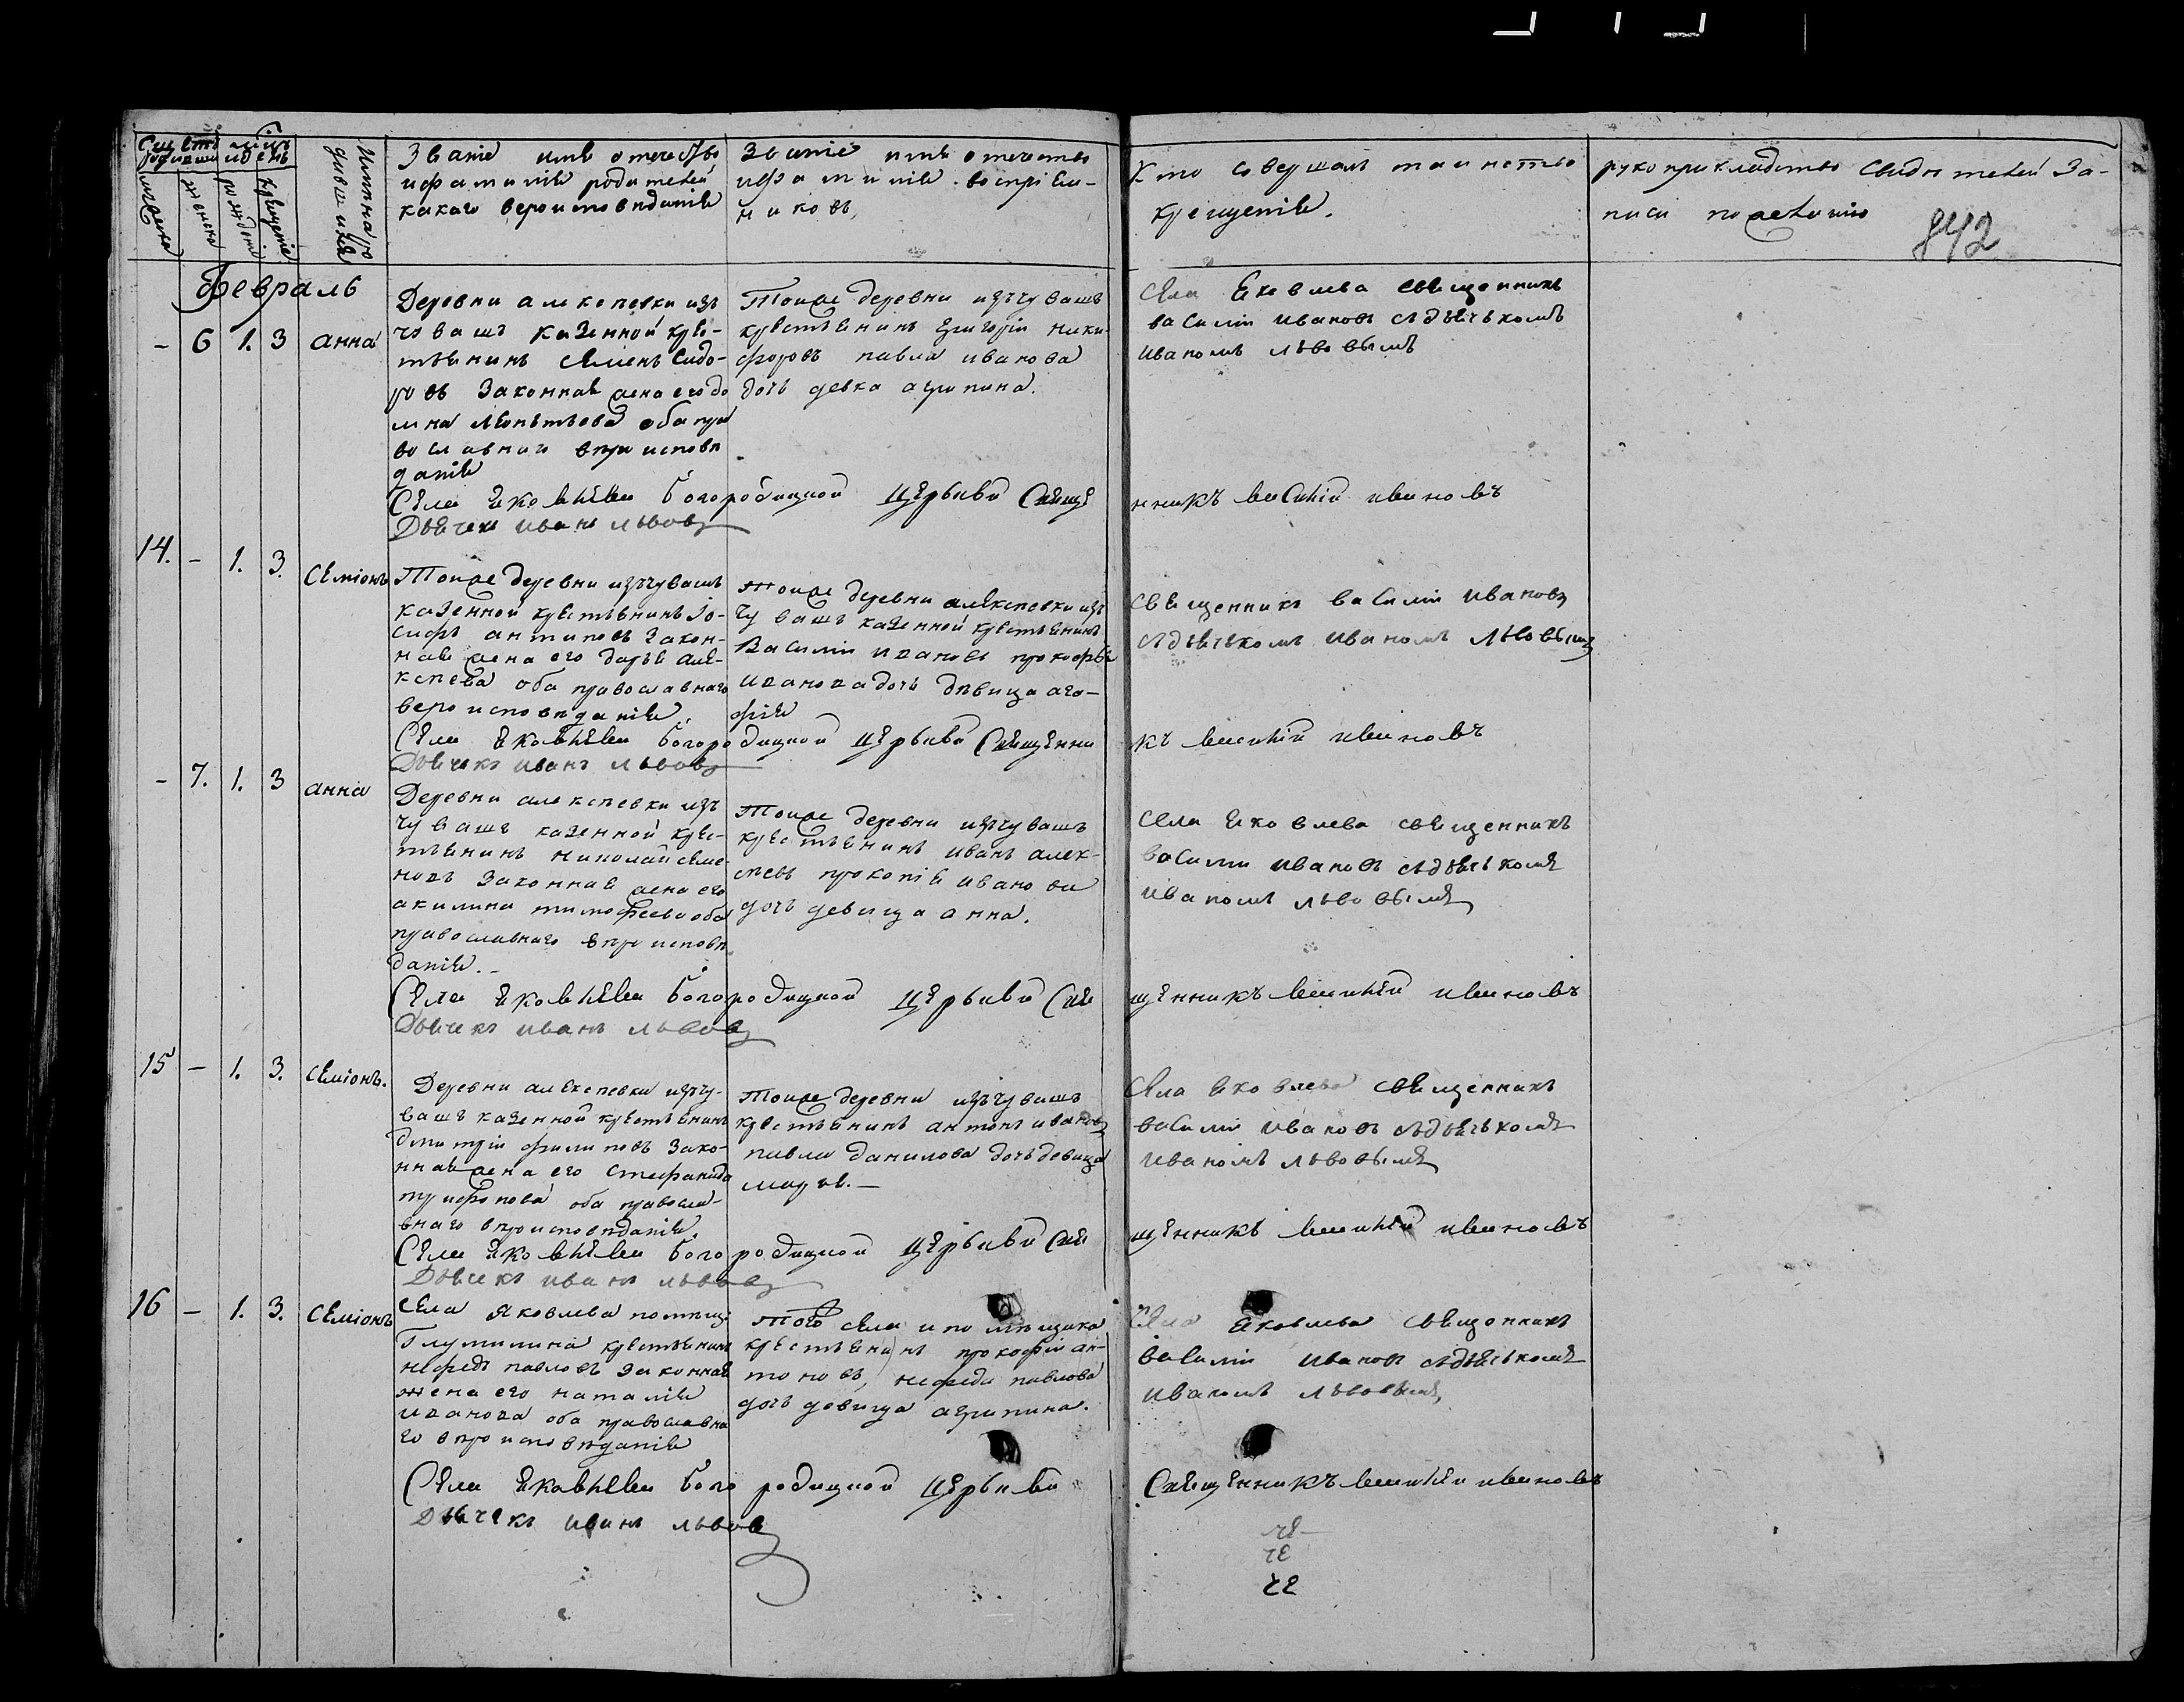 Счетъ
родившихся
мѣсяцъ
и день
мужеска
женска
рождения
крещенія
Имяна родившихся
Званіе имя отечество
и фамилія родителей
какаго вероисповѣданія
Званіе имя отечество
и фамилія воспріем-
никовъ
Кто совершалъ таинство
крещенія.
рукоприкладство свидетелей за-
писи по желанию
842
Февраль
- 6 1. 3 анна
Деревни алексеевки изъ
чувашъ казенной крес-
тьянинъ семенъ сидо-
ровъ законная жена его до
мна леонтьева оба пра
вославнаго вѣроисповѣ
данія
Тойже деревни изъ чувашъ
крестьянинъ григорiи ники-
форовъ павла иванова
дочь девка агрипина.
Села Яковлева священникъ
василiи ивановъ съ дьячькомъ
иваномъ львовымъ
Села Яковлева богородицкой церькви Свяще
нникъ василiй ивановъ
Дьячекъ иванъ львовъ
14. - 1. 3. семiонъ
Тойже деревни изъ чувашъ
казенной крестьянинъ Iо-
сифъ антиповъ закон-
ная жена его дарья але-
ксеева оба православнаго
вероисповѣданія
тойже деревни алексеевки изъ
чувашъ казенной крестьянинъ
Василiи ивановъ прокофья
иванова дочь дѣвица ага-
фія
священникъ василiи ивановъ
съ дьячькомъ иваномъ львовымъ
Села Яковлева богородицкой церькви Священни
къ василiй ивановъ
Дьячекъ иванъ львовъ
- 7. 1. 3 анна
Деревни алексеевки изъ
чувашъ казенной крес-
тьянинъ николай семе-
новъ законная жена его
акилина тимофеева оба
православнаго вѣроисповѣ
данія. -
Тойже деревни изъ чувашъ
крестьянинъ иванъ алек-
сеевъ прокопiя иванова
дочь девица анна.
села Яковлева священникъ
василiи ивановъ съ дьячькомъ
иваномъ львовымъ
Села Яковлева богородицкой церькви Свя
щенникъ василiй ивановъ
Дьячекъ иванъ львовъ
15 - 1. 3. семiонъ.
Деревни алексеевки изъ чу-
вашъ казенной крестьянинъ
дмитрiи филиповъ зако-
нная жена его стефанида
трифонова оба правосла-
внаго вѣроисповѣданія
тойже деревни изъ чувашъ
крестьянинъ антонъ ивановъ
павла данилова дочь девица
марья. -
Села Яковлева священникъ
василiи ивановъ съ дьячькомъ
иваномъ львовымъ
Села Яковлева богородицкой церькви Свя
щенникъ василiй ивановъ
Дьячекъ иванъ львовъ
16 - 1. 3. семiонъ
Села Яковлева помѣщи
крестьянинъ
нефедъ павловъ законная
жена его наталiя
иванова оба православна
го вѣроисповѣданія
того села и помѣщика
крестьянинъ прокофiи ан-
тоновъ, нефеда павлова
дочь девица агрипина.
Села Яковлева священникъ
василiи ивановъ съ дьячькомъ
иваномъ львовымъ,
Села Яковлева богородицкой церькви
Священникъ василiй ивановъ
Дьячекъ иванъ львовъ